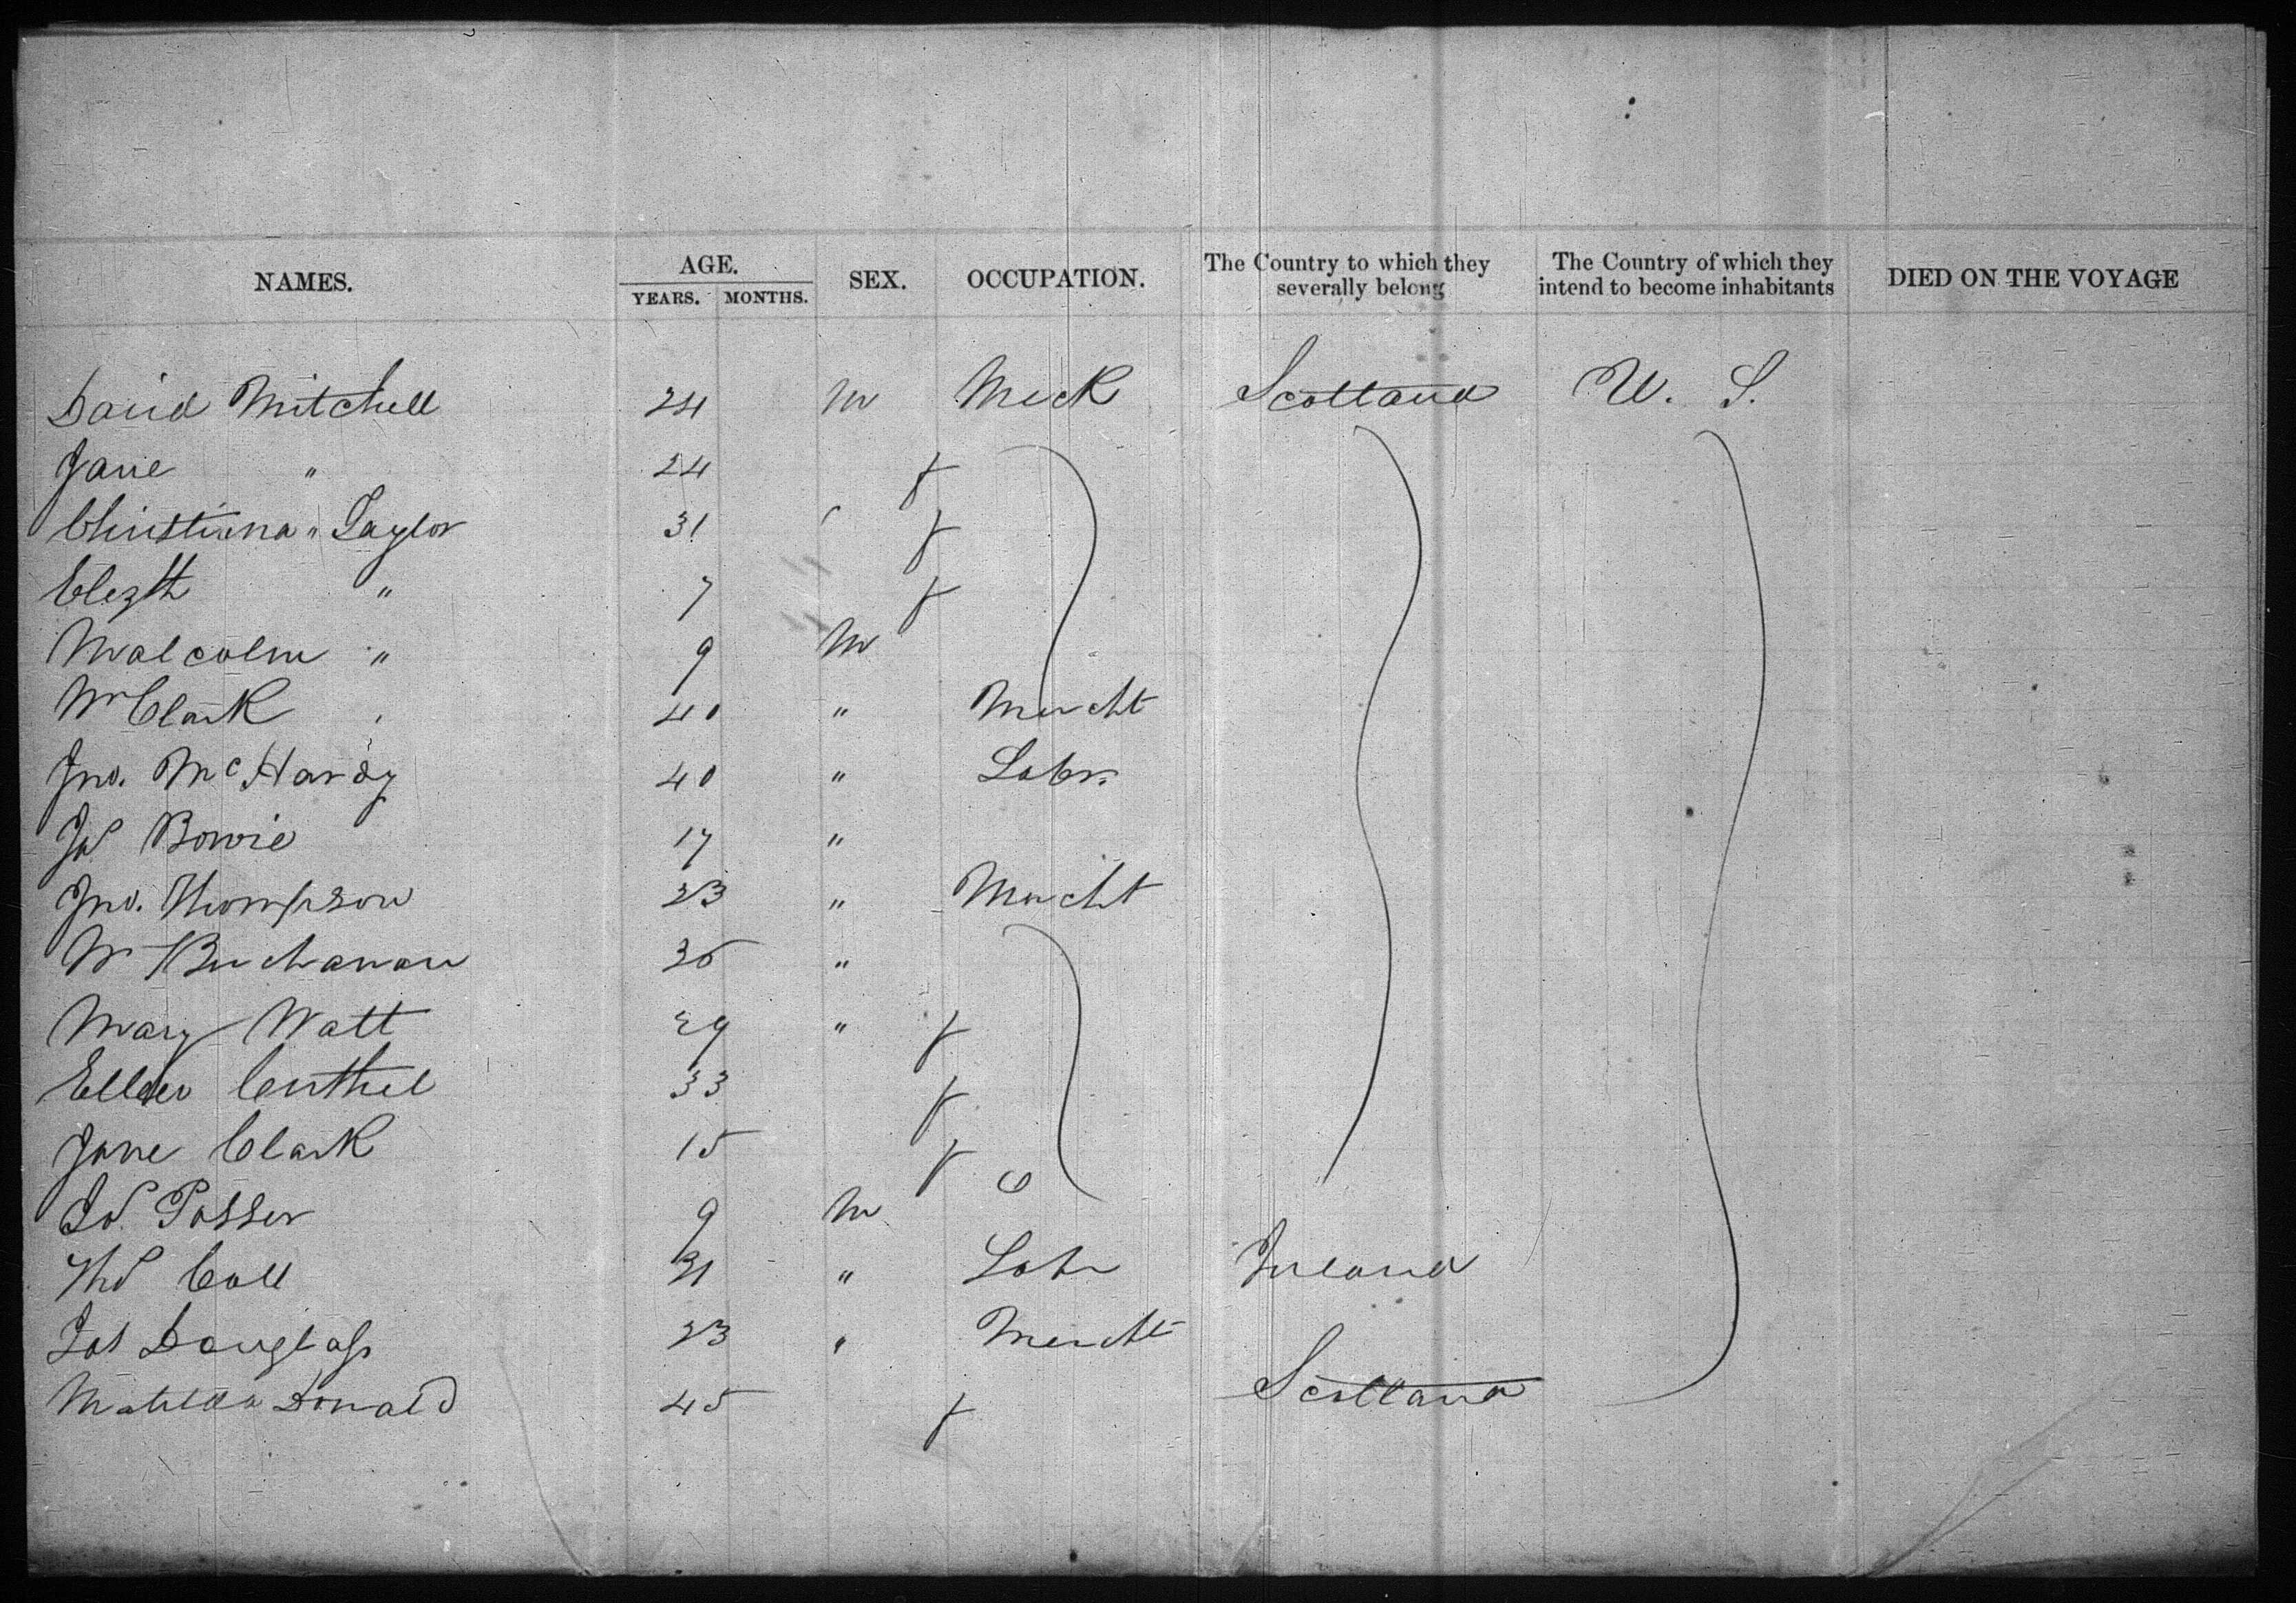 NAMES. AGE. YEARS. MONTHS. SEX. OCCUPATION. The Country to which they severally belong The Country of which they intend to become inhabitants DIED ON THE VOYAGE
David Mitchell 24 M Meck Scotland U. S.
Jane " 24 f
Christiana " Taylor 31 f
Elezth " 7 f
Malcolm " 9 M
Wm Clark 40 " Mercht
Jno. McHardy 40 " Labr.
Jas Bowie 17 "
Jno. Thompson 23 " Mercht
Wm Buchanan "
Mary Watt 29 " f
Ellen 33 f
Jane Clark 15 f
Jas. 9 M
Thos Coll 31 " Labr Ireland
Jas Douglass 23 " Mercht
Matilda Donald 45 f Scotland